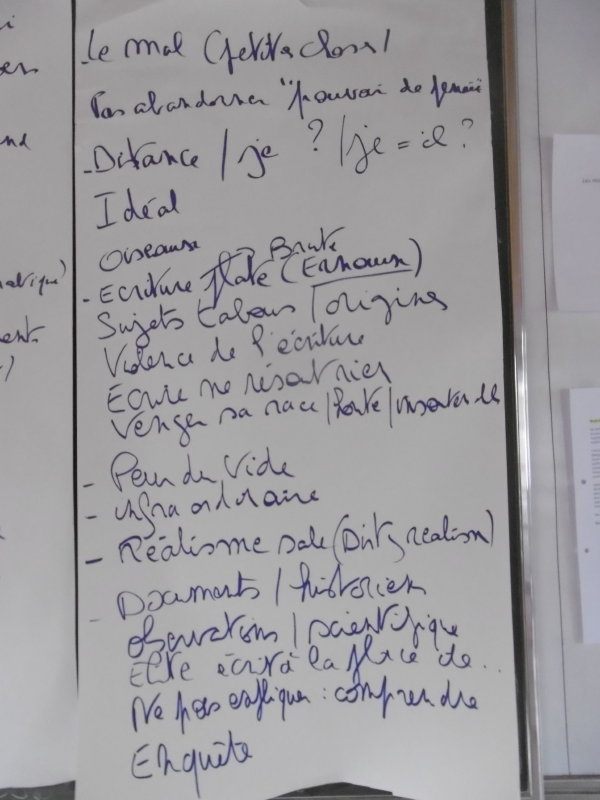 i
en
nd
atique)
ent.
)
- Le mal (petites choses)
Pas abandonner "pouvoir de
- Distance / je ? / je = il ?
Idéal
Oiseause → Brute
- Ecriture plate (Ernaux)
Sujets tabous / origines
Violence de l'écriture
Ecrire ne résout rien
Venger sa race / honte /
- Peur du Vide
- infra ordinaire
- Réalisme sale (Dirty realism)
- Documents / historien
observations / scientifique
Elle écrit à la place de...
Ne pas expliquer : comprendre
Enquête